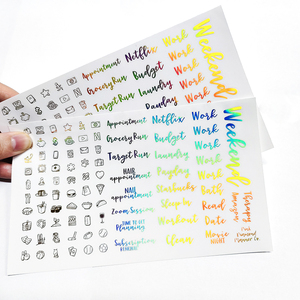 Appointment Netflix Work
Grocery Run Budget Work
Target Run Laundry Work
Payday Work
Weekend
Appointment Netflix Work
Grocery Run Budget Work
Target Run Laundry Work
HAIR
appointment Payday Work
Weekend
NAIL
appointment Starbucks Bath Therapy
Zoom Session Sleep in Read Amazon
TIME TO GET
Planning Workout Date
Subscription
Clean Movie
NIGHT
Planner Co.